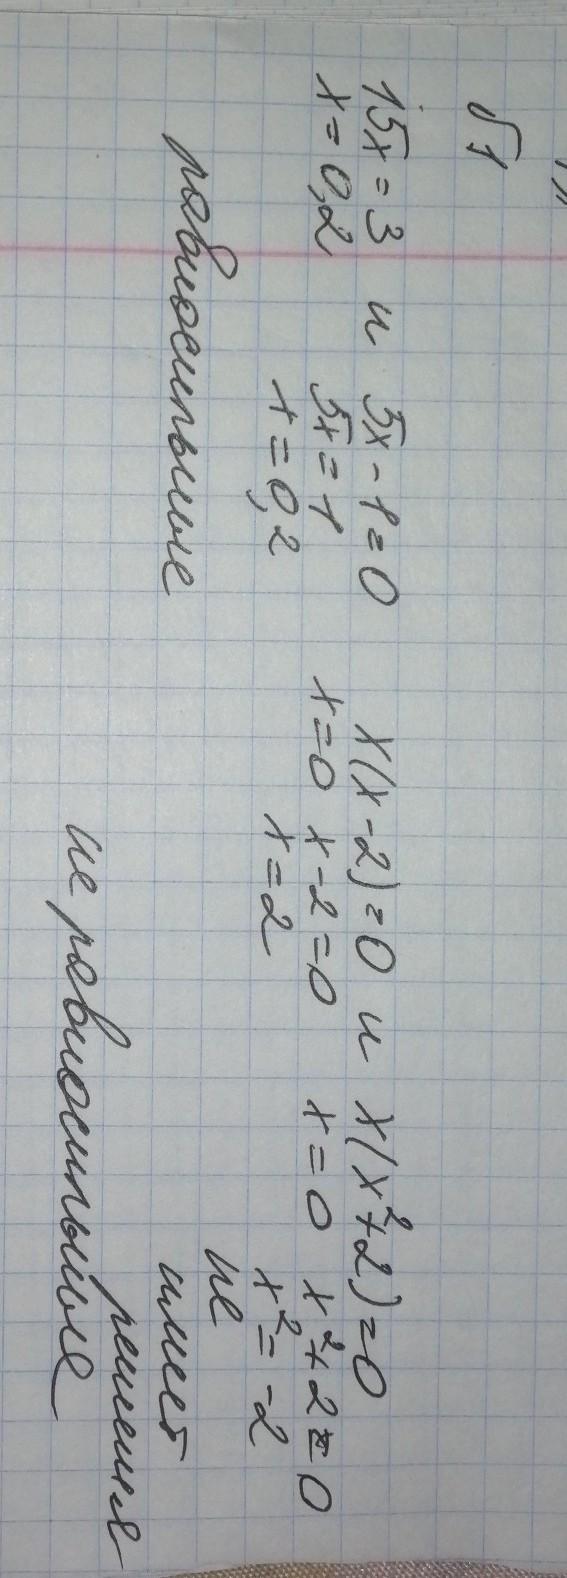 √1
15x = 3 и 5x - 1 = 0 x(x - 2) = 0 и x(x² + 2) = 0
x = 0,2 5x = 1 x = 0 x - 2 = 0 x = 0 x² + 2 = 0
x = 0,2 x = 2 x² = -2
не
равносильные имеет
решения
не равносильные